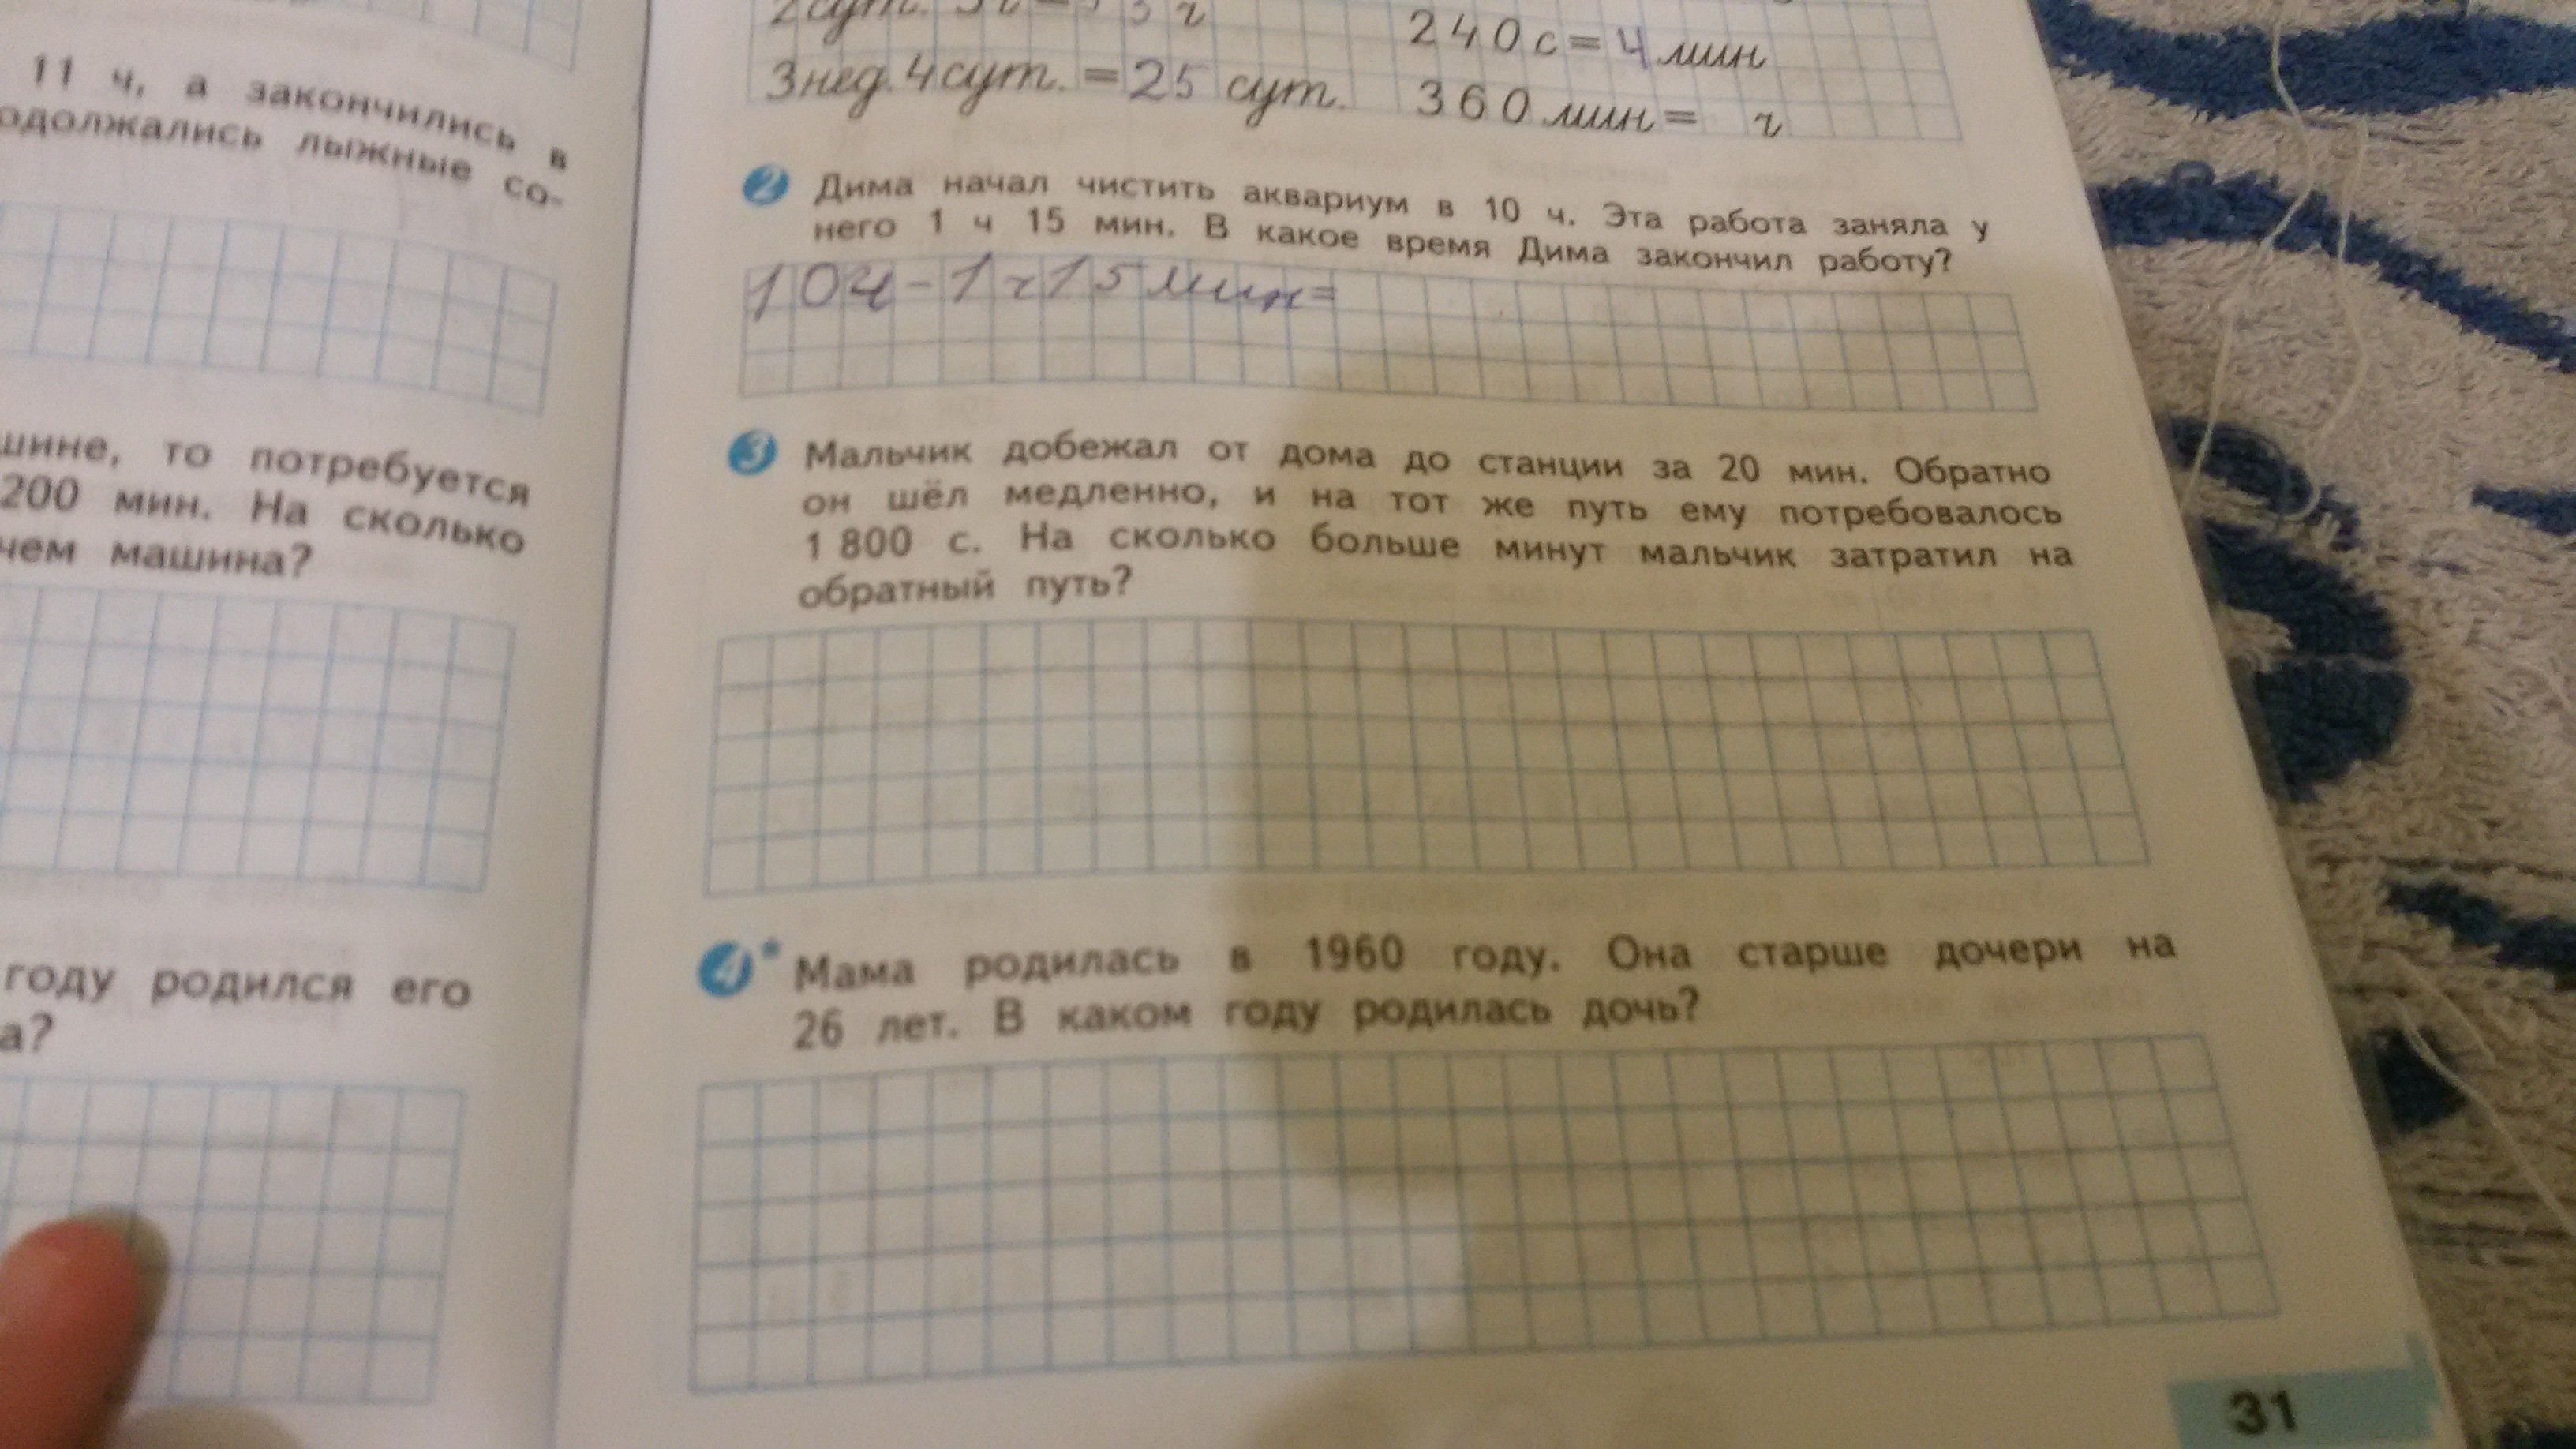 11 ч, а закончились в
лыжные со-
потребуется
200 мин. На сколько
чем машина?
году родился его
2 сут.
3 нед. 4 сут. = 25 сут.
240 с = 4 мин
360 мин = ч
2 Дима начал чистить аквариум в 10 ч. Эта работа заняла у
него 1 ч 15 мин. В какое время Дима закончил работу?
10ч-1ч15мин=
3 Мальчик добежал от дома до станции за 20 мин. Обратно
он шёл медленно, и на тот же путь ему потребовалось
1 800 с. На сколько больше минут мальчик затратил на
обратный путь?
4* Мама родилась в 1960 году. Она старше дочери на
26 лет. В каком году родилась дочь?
31